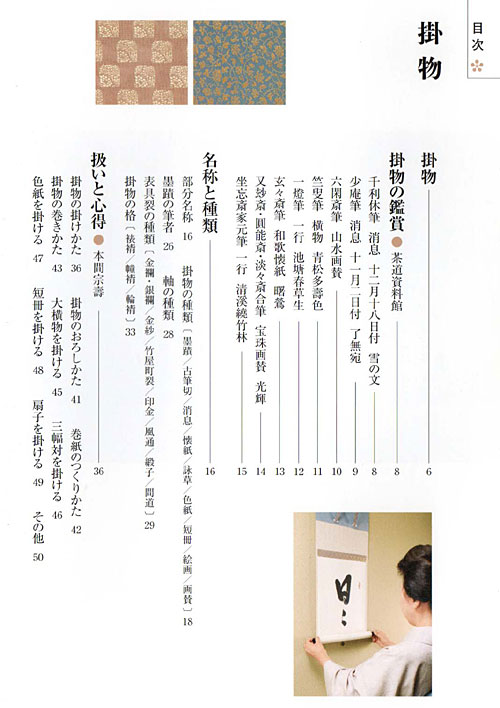 目次
掛物
掛物 6
掛物の鑑賞●茶道資料館 8
千利休筆 消息 十二月十八日付 雪の文 8
少庵筆 消息 十一月二日付 了無宛 9
六閑斎筆 山水画賛 10
竺叟筆 横物 青松多壽色 11
一燈筆 一行 池塘春草生 12
玄々斎筆 和歌懐紙 曙鶯 13
又玅斎・圓能斎・淡々斎合筆 宝珠画賛 光輝 14
坐忘斎家元筆 一行 清溪繞竹林 15
名称と種類 16
部分名称 16 掛物の種類〔墨蹟/古筆切/消息/懐紙/詠草/色紙/短冊/絵画/画賛〕18
墨蹟の筆者 26 軸の種類 28
表具裂の種類〔金襴・銀襴/金紗/竹屋町裂/印金/風通/緞子/間道〕29
掛物の格〔裱褙/幢褙/輪褙〕33
扱いと心得●本間宗壽 36
掛物の掛けかた 36 掛物のおろしかた 41 巻紙のつくりかた 42
掛物の巻きかた 43 大横物を掛ける 45 三幅対を掛ける 46
色紙を掛ける 47 短冊を掛ける 48 扇子を掛ける 49 その他 50